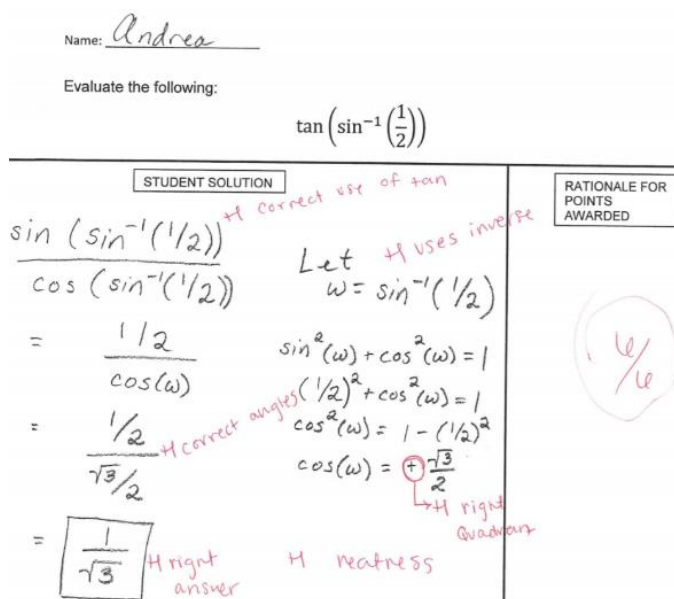 Name: Andrea
Evaluate the following:
tan(sin⁻¹(1/2))
STUDENT SOLUTION
RATIONALE FOR
POINTS
AWARDED
+1 correct use of tan
sin (sin⁻¹(1/2))
cos (sin⁻¹(1/2))
= 1/2
cos(ω)
= 1/2
√3/2
+1 correct angles
= 1
√3
+1 right
answer
+1 uses inverse
Let
ω = sin⁻¹(1/2)
sin²(ω) + cos²(ω) = 1
(1/2)² + cos²(ω) = 1
cos²(ω) = 1 - (1/2)²
cos(ω) = + √3/2
+1 right
Quadran
+1 neatness
6/6